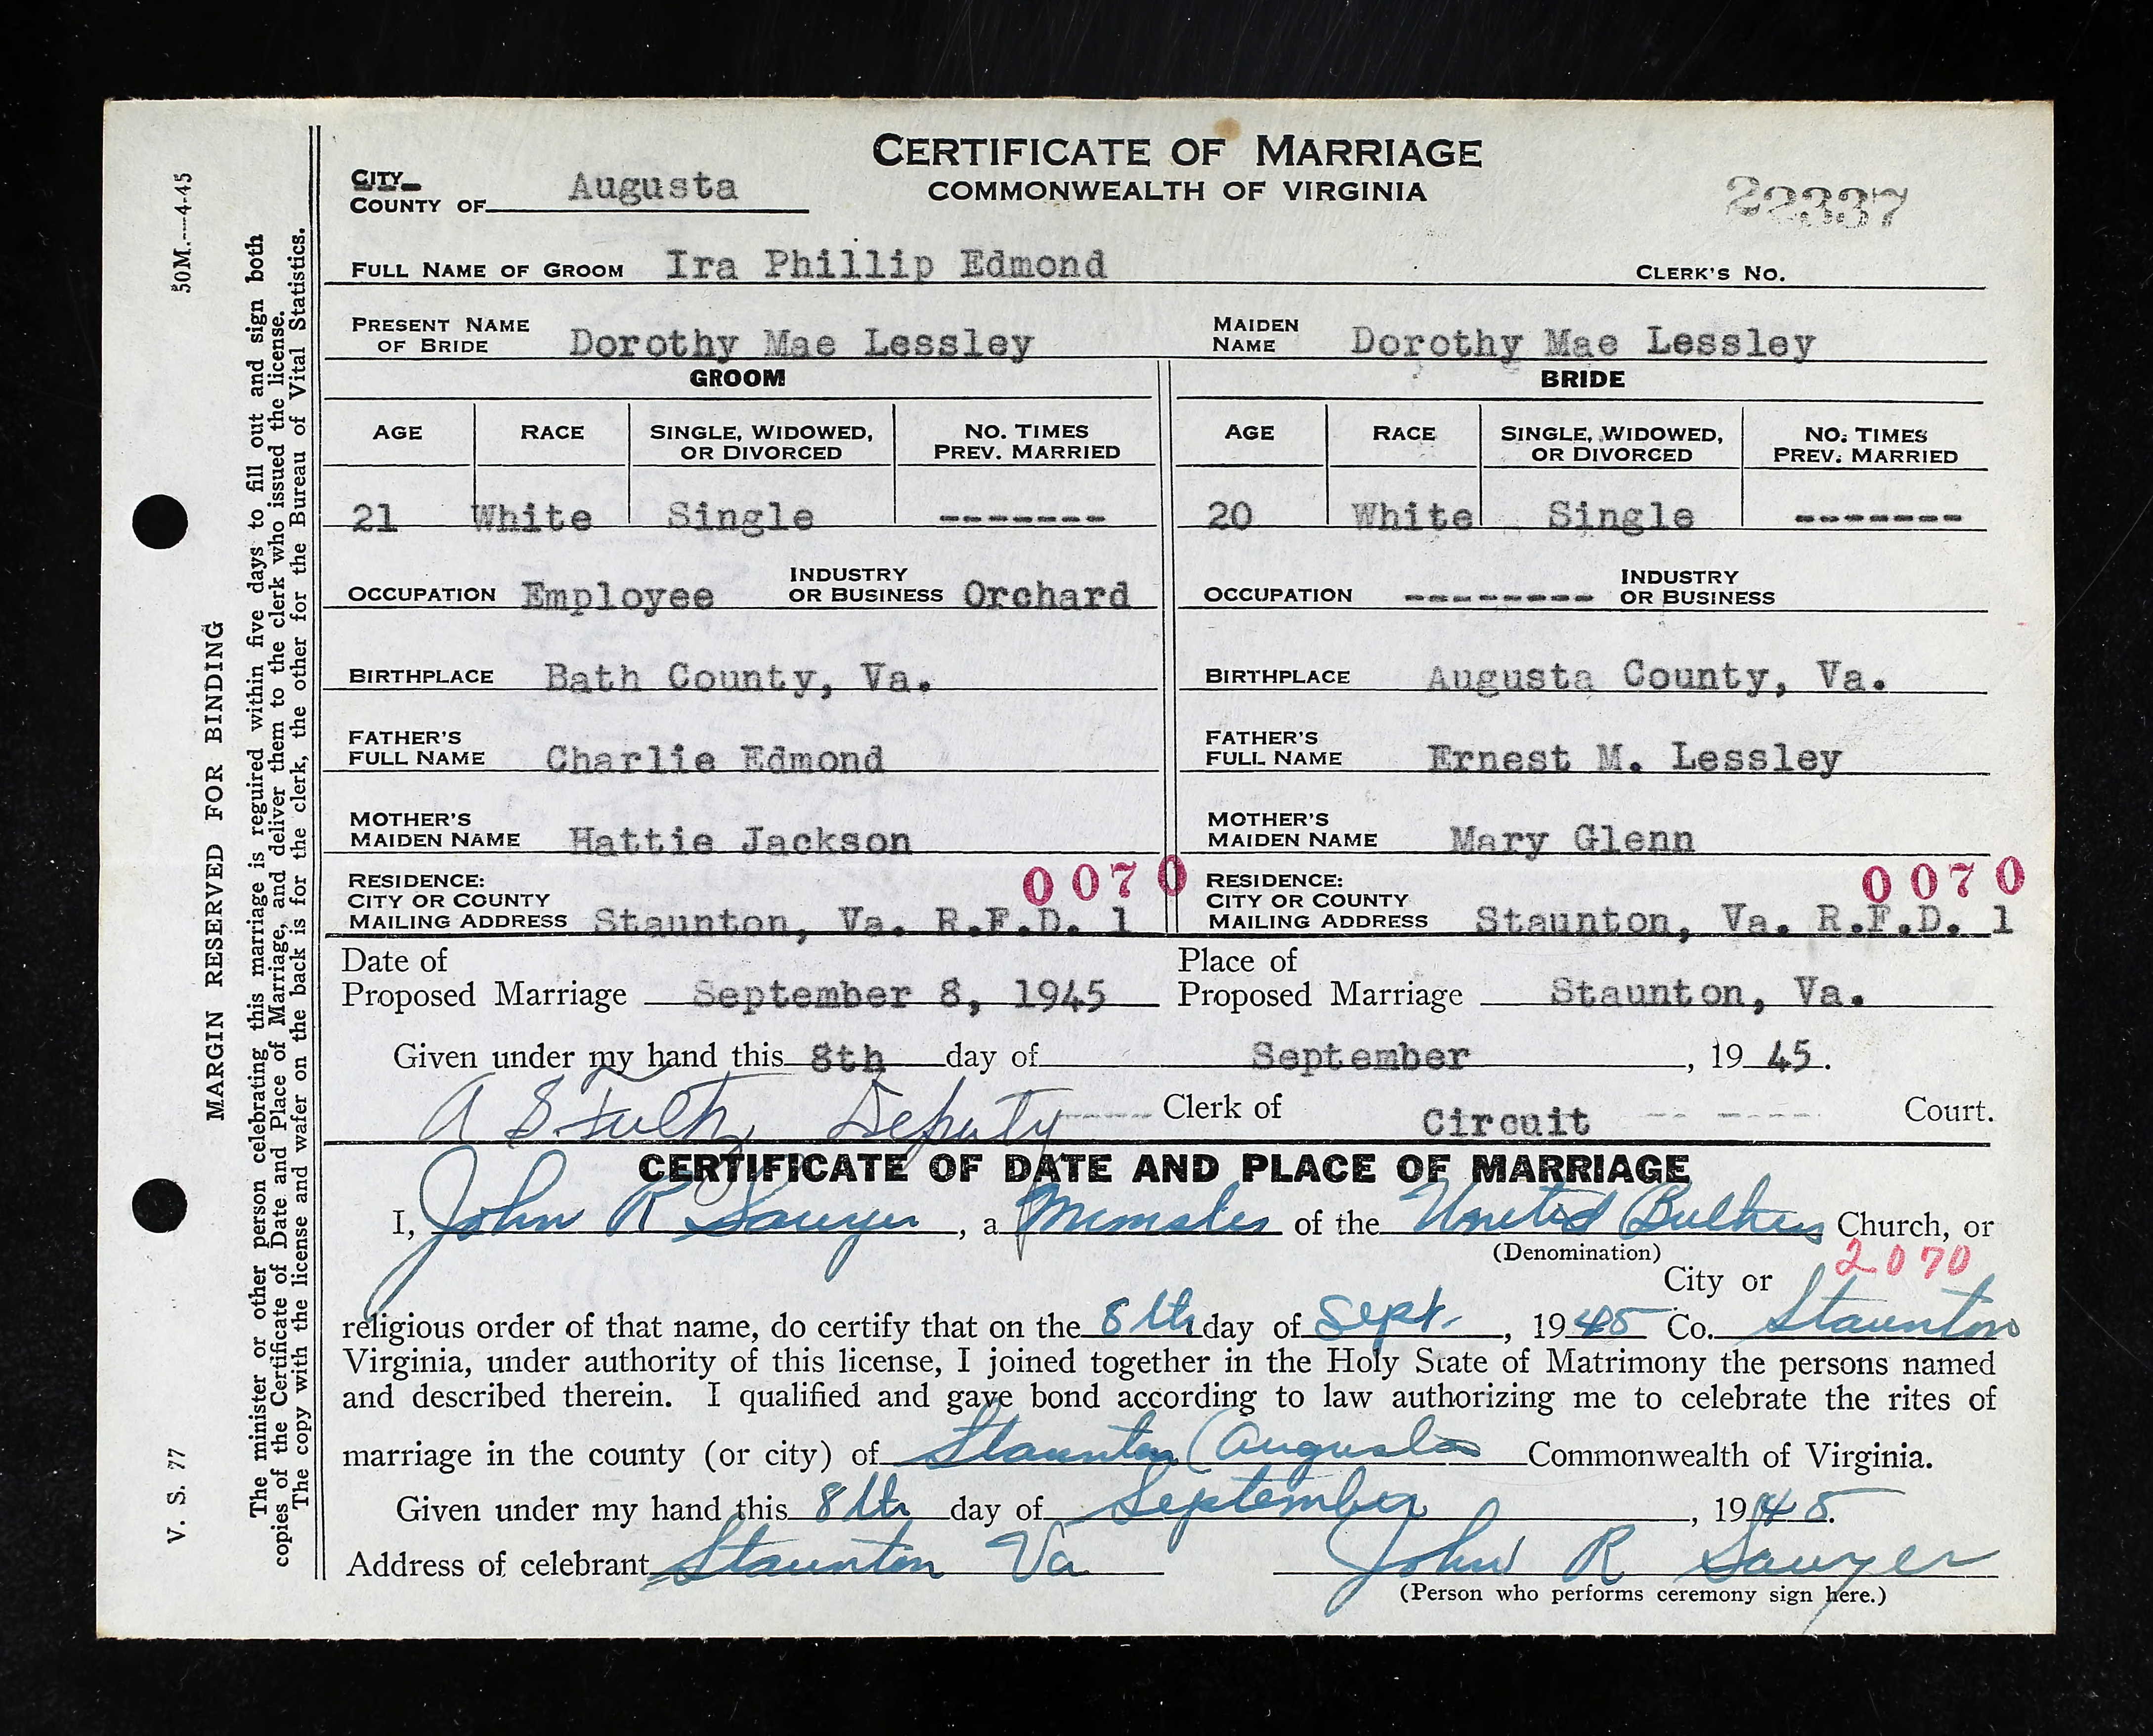 CERTIFICATE OF MARRIAGE
COMMONWEALTH OF VIRGINIA
CITY
COUNTY OF Augusta
22337
FULL NAME OF GROOM Ira Phillip Edmond CLERK'S NO.
PRESENT NAME OF BRIDE Dorothy Mae Lessley MAIDEN NAME Dorothy Mae Lessley
GROOM BRIDE
AGE RACE SINGLE, WIDOWED, OR DIVORCED NO. TIMES PREV. MARRIED AGE RACE SINGLE, WIDOWED, OR DIVORCED NO. TIMES PREV. MARRIED
21 White Single ------- 20 White Single -------
OCCUPATION Employee INDUSTRY OR BUSINESS Orchard OCCUPATION -------- INDUSTRY OR BUSINESS
BIRTHPLACE Bath County, Va. BIRTHPLACE Augusta County, Va.
FATHER'S FULL NAME Charlie Edmond FATHER'S FULL NAME Ernest M. Lessley
MOTHER'S MAIDEN NAME Hattie Jackson MOTHER'S MAIDEN NAME Mary Glenn
0070 0070
RESIDENCE: CITY OR COUNTY MAILING ADDRESS Staunton, Va. R.F.D. 1 RESIDENCE: CITY OR COUNTY MAILING ADDRESS Staunton, Va. R.F.D. 1
Date of Proposed Marriage September 8, 1945 Place of Proposed Marriage Staunton, Va.
Given under my hand this 8th day of September, 1945.
A S. Fultz Deputy Clerk of Circuit Court.
CERTIFICATE OF DATE AND PLACE OF MARRIAGE
I, John R Sawyer, a Minister of the United Church, or
(Denomination)
2070
City or
religious order of that name, do certify that on the 8th day of Sept., 1945 Co. Staunton
Virginia, under authority of this license, I joined together in the Holy State of Matrimony the persons named
and described therein. I qualified and gave bond according to law authorizing me to celebrate the rites of
marriage in the county (or city) of Staunton (Augusta Commonwealth of Virginia.
Given under my hand this 8th day of September, 1945.
Address of celebrant Staunton Va John R Sawyer
(Person who performs ceremony sign here.)
V. S. 77 50M.—4-45
MARGIN RESERVED FOR BINDING
The minister or other person celebrating this marriage is reguired within five days to fill out and sign both
copies of the Certificate of Date and Place of Marriage, and deliver them to the clerk who issued the license.
The copy with the license and wafer on the back is for the clerk, the other for the Bureau of Vital Statistics.